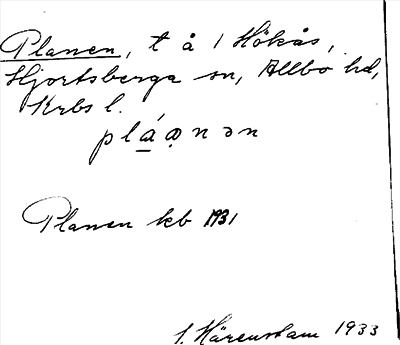 Planen, t å 1 Hökås,
Hjortsberga sn, Allbo hd,
Krbs l.
plánən
Planen kb 1931
S. Härenstam 1933